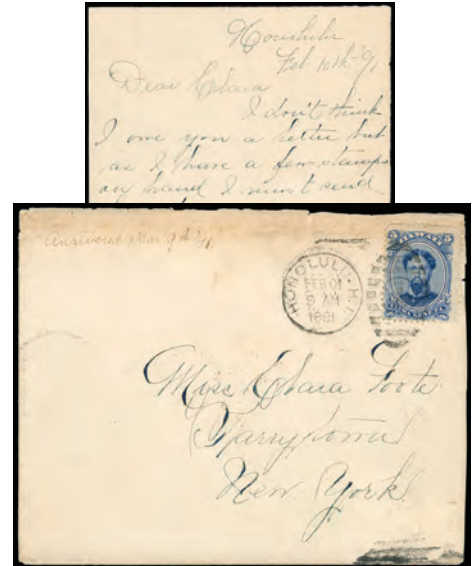 Honolulu
Feb 10th 91
Dear Clara
I don't think
I owe you a letter but
as I have a few stamps
on hand I must send
Answered Mar 9th 91
HONOLULU. H.I.
FEB 01
9 AM
1891
5 5
Miss Clara Foote
Tarrytown
New York